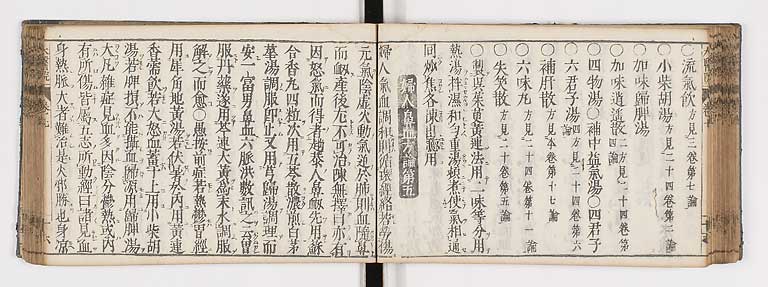 ○流氣飲 方見三卷第七論
○小柴胡湯 方見二十四卷第二論
○加味歸脾湯
○加味逍遙散 二方見二十四卷第四論
○四物湯○補中益氣湯○四君子
○六君子湯 四方見二十四卷第六論
○補肝散 方見本卷第十七論
○六味丸 方見二十四卷第十一論
○失笑散 方見二十卷第五論
○製吳茱萸黃連法用一味等分用
熱湯拌濕和勻重湯頓者使氣相通
回炒焦各揀出聽用
婦人鼻血方論第五
婦人氣血調和則循環經絡若勞傷
元氣陰虛火動氣逆於肺則血隨鼻
而衂產後尤不可治陳無擇曰亦有
因怒氣而得者趙恭人鼻衂先用蘇
合香丸四粒次用五苓散濃煎白茅
墓湯調服卽止又用芎歸湯調理而
安一富男鼻血六脉洪數訊之云胃
服丹藥遂用芩連大黃爲末水調服
解之而愈○愚按前症若熱鬱胃經
用犀角地黃湯若伏暑於內用黃連
香薷飲若大怒血蓄于上用小柴胡
湯若脾損不能攝血歸源用歸脾湯
大凡雜症見血多因陰分鬱熱或內
有所傷皆屬五志所動經曰諸見血
身熱脉大者難治是火邪勝也身凉